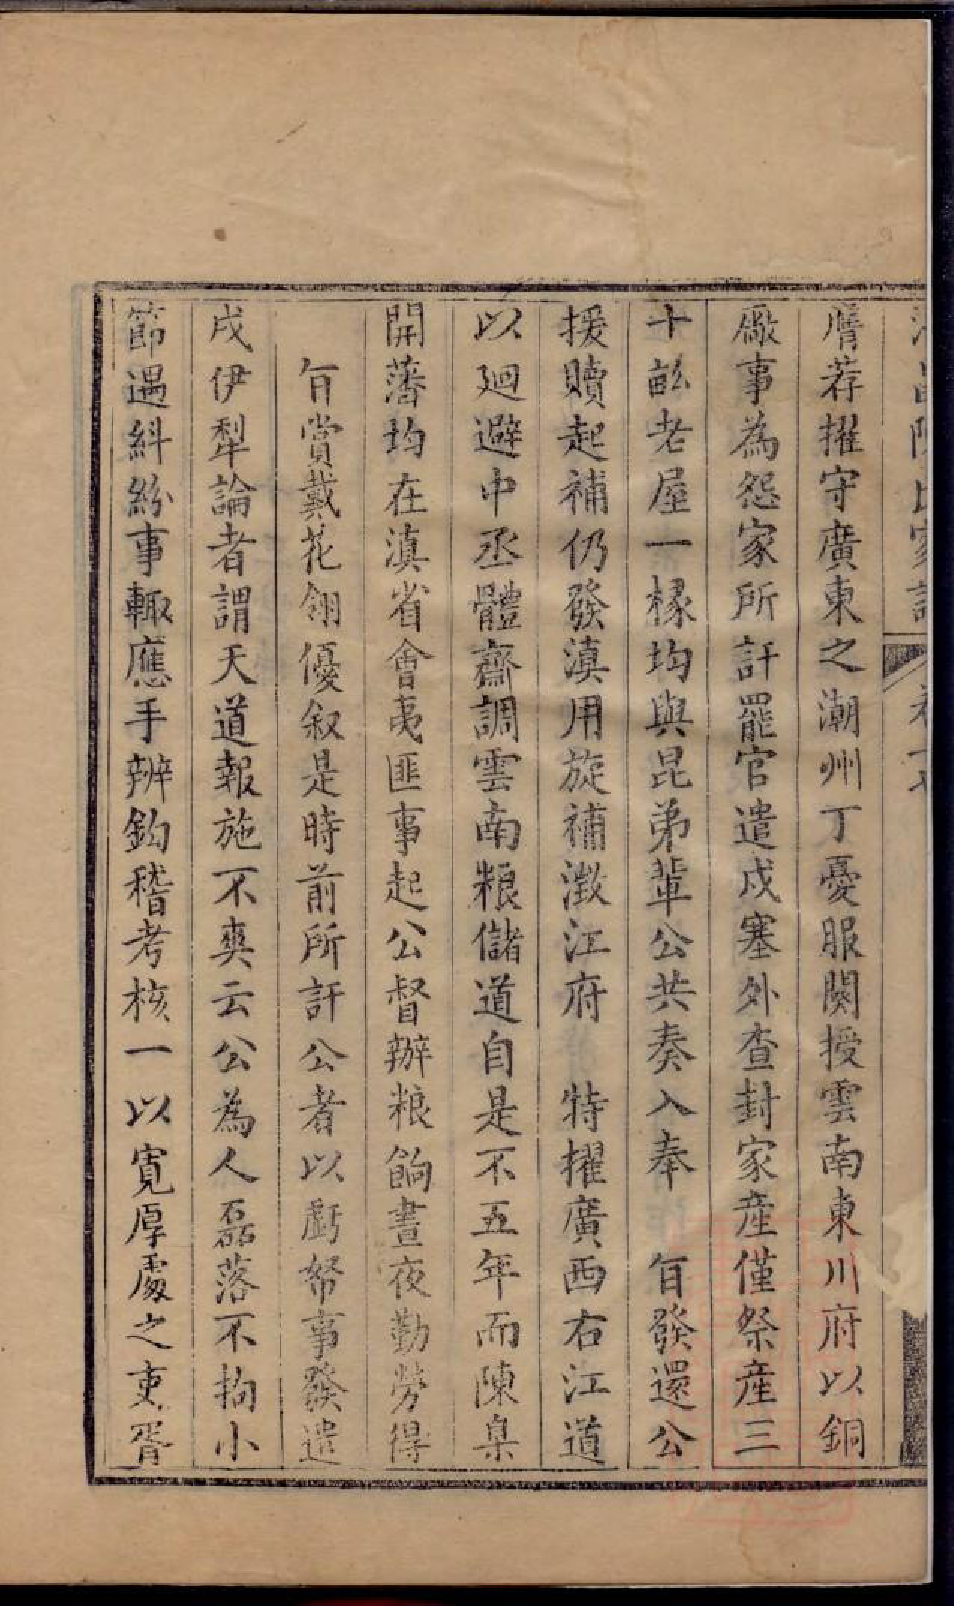 膺荐擢守廣東之潮州丁憂服闋授雲南東川府以銅
廠事為怨家所訐罷官遣戍塞外查封家產僅祭產三
十畝老屋一椽均與昆弟輩公共奏入奉 旨發還公
援贖起補仍發滇用旋補澂江府 特擢廣西右江道
以廻避中丞體齋調雲南粮儲道自是不五年而陳臬
開藩均在滇省會夷匪事起公督辦粮餉晝夜勤勞得
旨賞戴花翎優叙是時前所訐公者以虧帑事發遣
戍伊犁論者謂天道報施不爽云公為人磊落不拘小
節遇糾紛事輙應手辦鈎稽考核一以寬厚處之吏胥